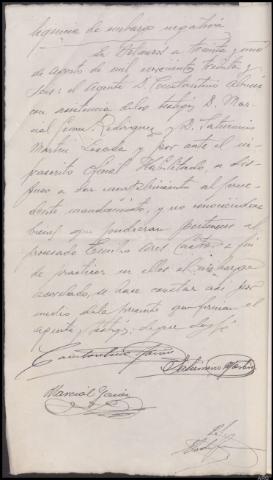 ligencia de embargo negativa
En Palencia a treinta y uno
de agosto de mil novecientos treinta y
seis: el Agente D. Constantino
con asistencia de los testigos D. Mar-
cial Rodriguez y D. Saturnino
Martin y por ante el in-
frascrito Oficial Habilitado, a dis-
puso a dar cumplimiento al prece-
dente mandamiento, y no conociéndose
bienes que pudieran pertenecer al
procesado Castro a fin
de practicar en ellos el embargo
acordado, se hace constar así por
medio de la presente que firman el
agente y testigos: de que doy fé
Constantino
Saturnino Martin
Marcial